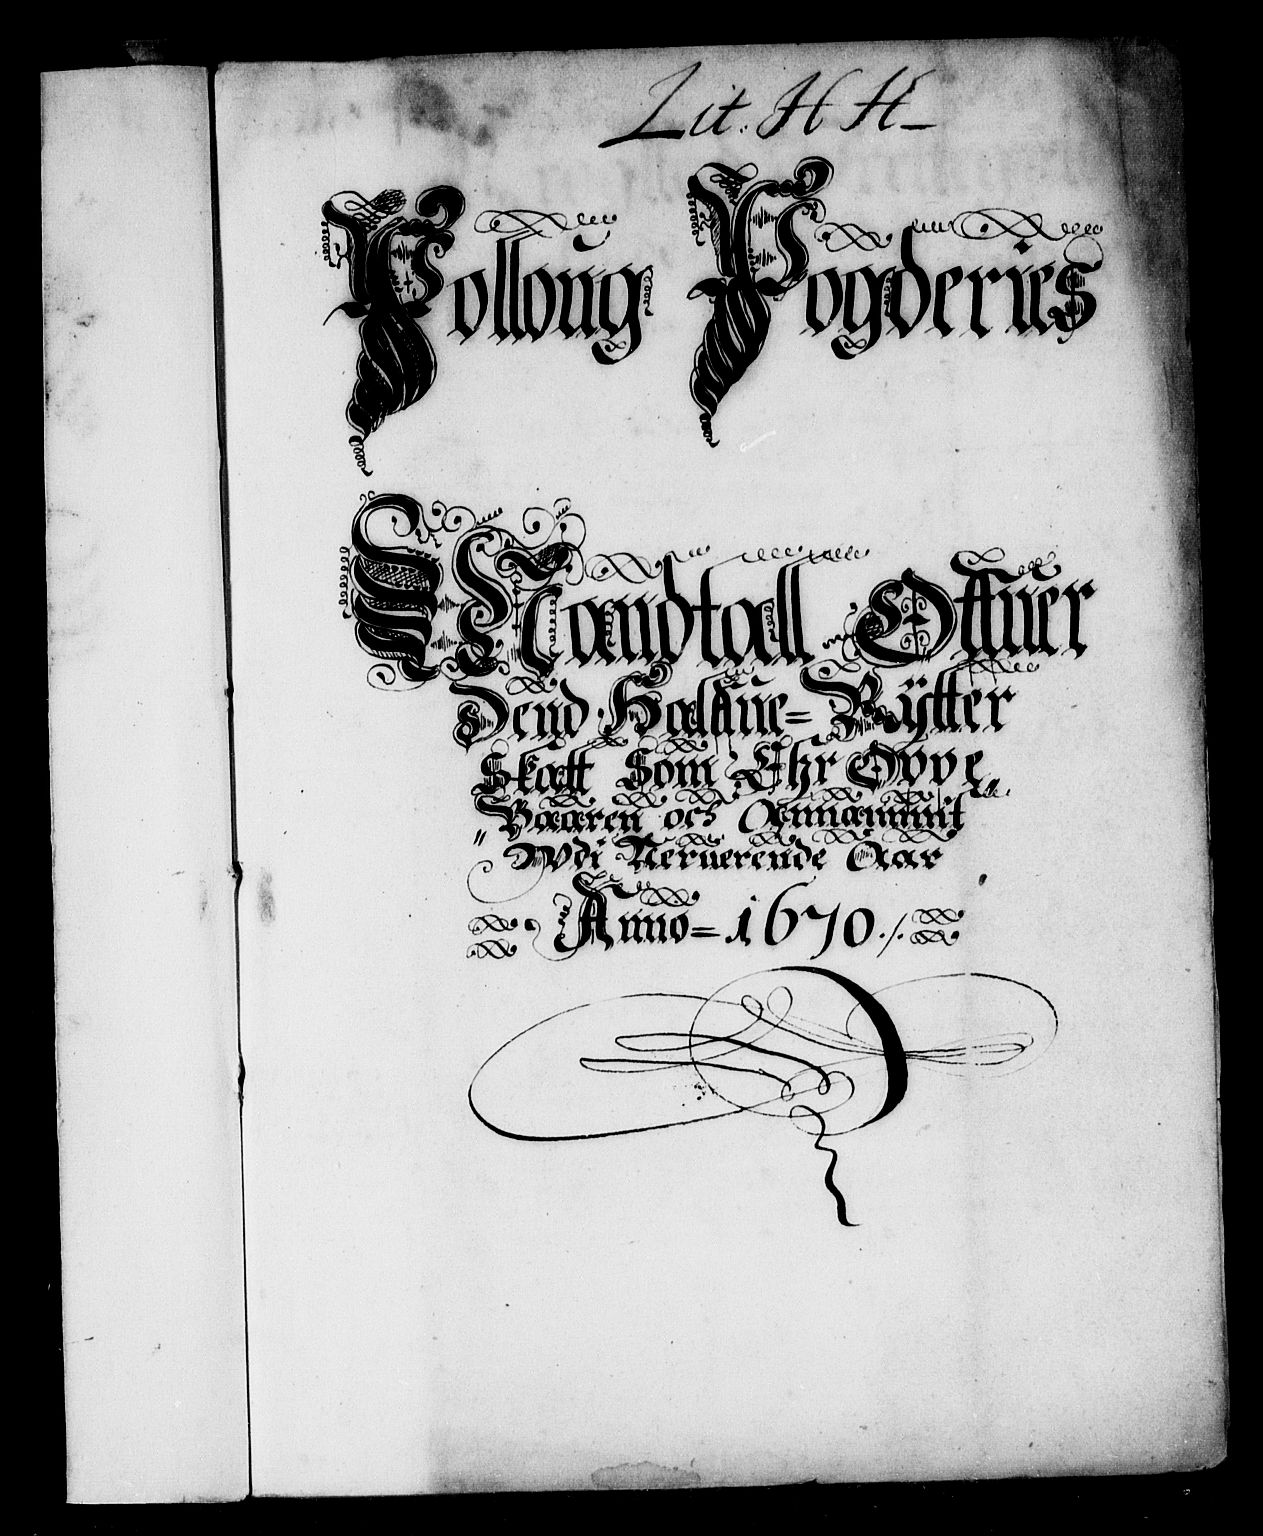 Lit. H H
Folloug Fogderies
Mandtall Offuer
Dend Halffue= Rÿtter
Skatt Som Ehr Oppe
Baaren och Annammit
Wdi Neruerende Aar
Anno= 1670 ./.